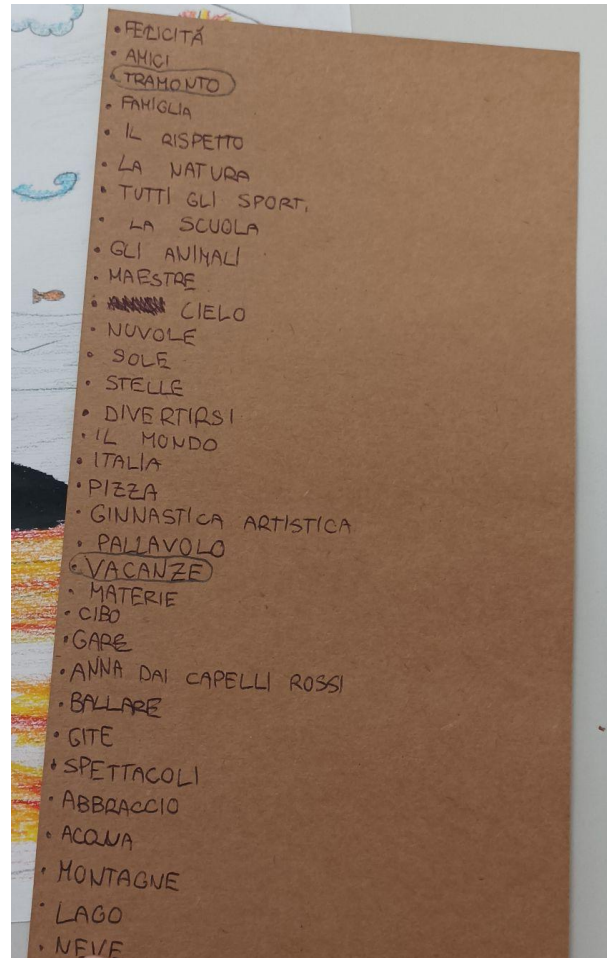 • FELICITÀ
• AMICI
• TRAMONTO
• FAMIGLIA
• IL RISPETTO
• LA NATURA
• TUTTI GLI SPORT.
• LA SCUOLA
• GLI ANIMALI
• MAESTRE
• CIELO
• NUVOLE
• SOLE
• STELLE
• DIVERTIRSI
• IL MONDO
• ITALIA
• PIZZA
• GINNASTICA ARTISTICA
• PALLAVOLO
• VACANZE
• MATERIE
• CIBO
• GARE
• ANNA DAI CAPELLI ROSSI
• BALLARE
• GITE
• SPETTACOLI
• ABBRACCIO
• ACQUA
• MONTAGNE
• LAGO
• NEVE